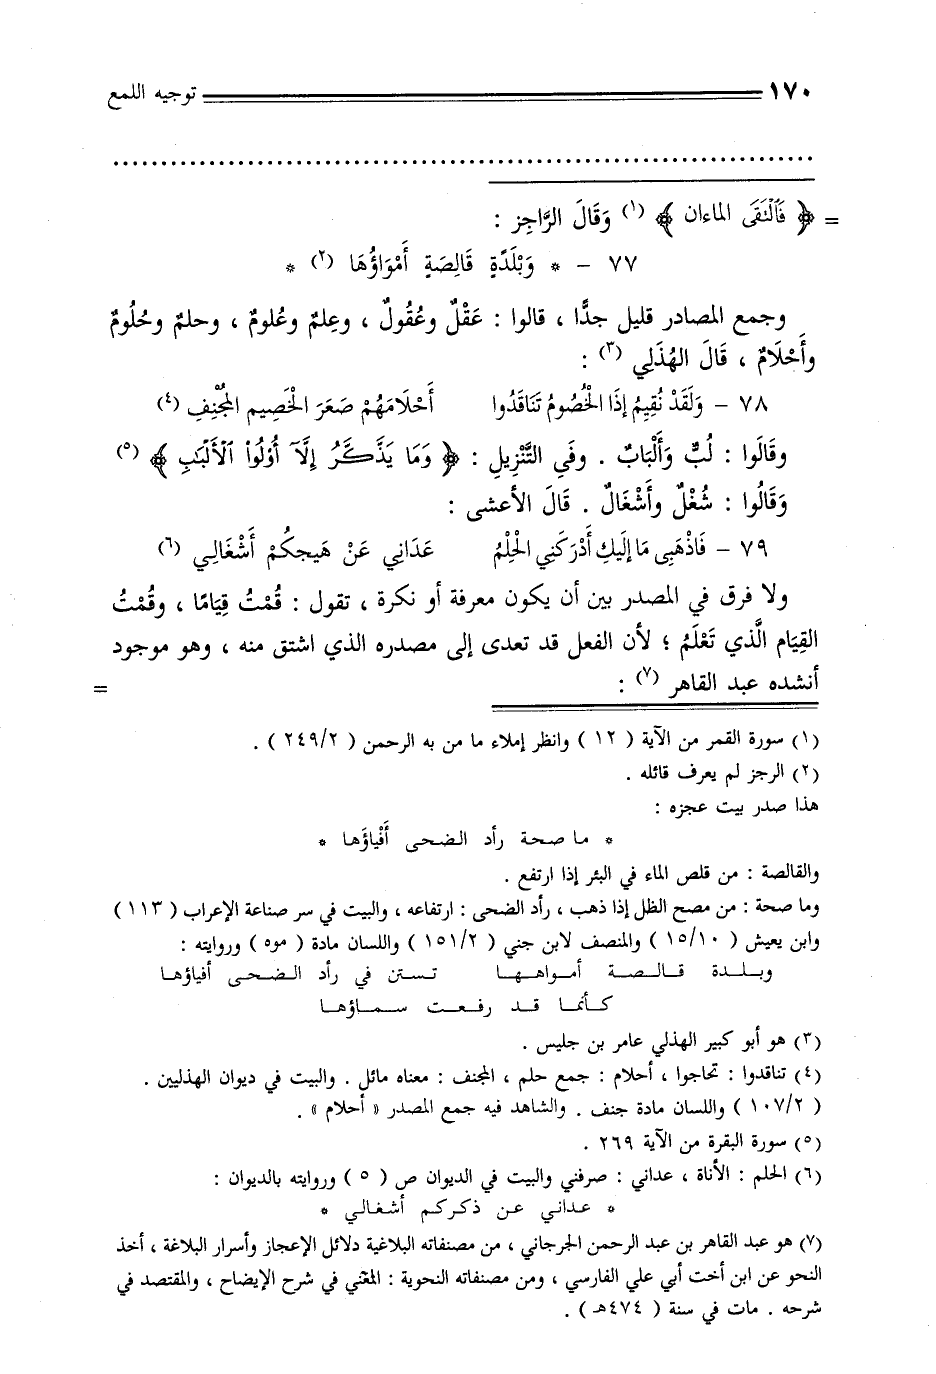 ١٧٠ توجيه اللمع
= ﴿ فَالْتَقَى الماءان ﴾ (١) وَقَالَ الرَّاجِز :
٧٧ - * وَبَلْدَةٍ قَالِصَةٍ أَمْوَاؤُهَا (٢) *
وجمع المصادر قليل جدًّا ، قالوا : عَقْلٌ وعُقُولٌ ، وعِلمٌ وعُلومٌ ، وحلمٌ وحُلُومٌ
وأَحْلَامٌ ، قَالَ الهُذَلِي (٣) :
٧٨ - وَلَقَدْ نُقِيمُ إذَا الْخُصُومُ تَنَاقَدُوا أَحْلَامَهُمْ صَعَرَ الْخَصِيمِ الْمُجْنِفِ (٤)
وقَالَوا : لُبٌّ وَأَلْبَابٌ . وفي التَّنْزِيلِ : ﴿ وَمَا يَذَّكَّرُ إِلَّآ أُوْلُواْ ٱلْأَلْبَٰبِ ﴾ (٥)
وَقَالُوا : شُغْلٌ وأَشْغَالٌ . قَالَ الأعشى :
٧٩ - فَاذْهَبِى مَا إلَيكِ أَدْرَكَنِي الْحِلْمُ عَدَانِي عَنْ هَيجكُمْ أَشْغَالِي (٦)
ولا فرق في المصدر بين أن يكون معرفة أو نكرة ، تقول : قُمْتُ قِيَامًا ، وقُمْتُ
القِيَام الَّذي تَعْلَمُ ؛ لأن الفعل قد تعدى إلى مصدره الذي اشتق منه ، وهو موجود
أنشده عبد القاهر (٧) : =
(١) سورة القمر من الآية ( ١٢ ) وانظر إملاء ما من به الرحمن ( ٢٤٩/٢ ) .
(٢) الرجز لم يعرف قائله .
هذا صدر بيت عجزه :
* ما صحة رأد الضحى أَفْياؤَها *
والقالصة : من قلص الماء في البئر إذا ارتفع .
وما صحة : من مصح الظل إذا ذهب ، رأد الضحى : ارتفاعه ، والبيت في سر صناعة الإعراب ( ١١٣ )
وابن يعيش ( ١٥/١٠ ) والمنصف لابن جني ( ١٥١/٢ ) واللسان مادة ( موه ) وروايته :
وبـلـدة قـالـصـة أمـواهـهـا تـسـتـن في رأد الـضـحـى أفياؤهـا
كـأنما قـد رفـعـت سـمـاؤهـا
(٣) هو أبو كبير الهذلي عامر بن جليس .
(٤) تناقدوا : تحاجوا ، أحلام : جمع حلم ، المجنف : معناه مائل . والبيت في ديوان الهذليين .
( ١٠٧/٢ ) واللسان مادة جنف . والشاهد فيه جمع المصدر « أحلام » .
(٥) سورة البقرة من الآية ٢٦٩ .
(٦) الحلم : الأناة ، عداني : صرفني والبيت في الديوان ص ( ٥ ) وروايته بالديوان :
* عـداني عـن ذكـركـم أشـغـالي *
(٧) هو عبد القاهر بن عبد الرحمن الجرجاني ، من مصنفاته البلاغية دلائل الإعجاز وأسرار البلاغة ، أخذ
النحو عن ابن أخت أبي علي الفارسي ، ومن مصنفاته النحوية : المغني في شرح الإيضاح ، والمقتصد في
شرحه . مات في سنة ( ٤٧٤هـ ) .